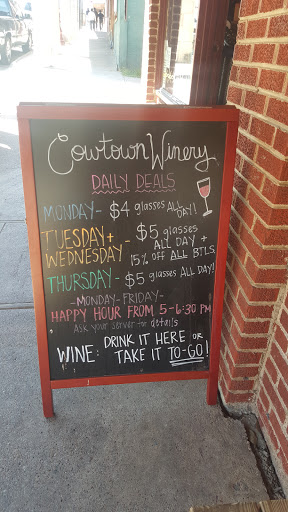 Cowtown Winery
DAILY DEALS
MONDAY - $4 glasses ALL DAY!
TUESDAY + WEDNESDAY - $5 glasses ALL DAY + 15% off ALL BTLS.
THURSDAY - $5 glasses ALL DAY!
- MONDAY - FRIDAY -
HAPPY HOUR FROM 5-6:30 PM
Ask your server for details
WINE: DRINK IT HERE or
TAKE IT TO-GO!